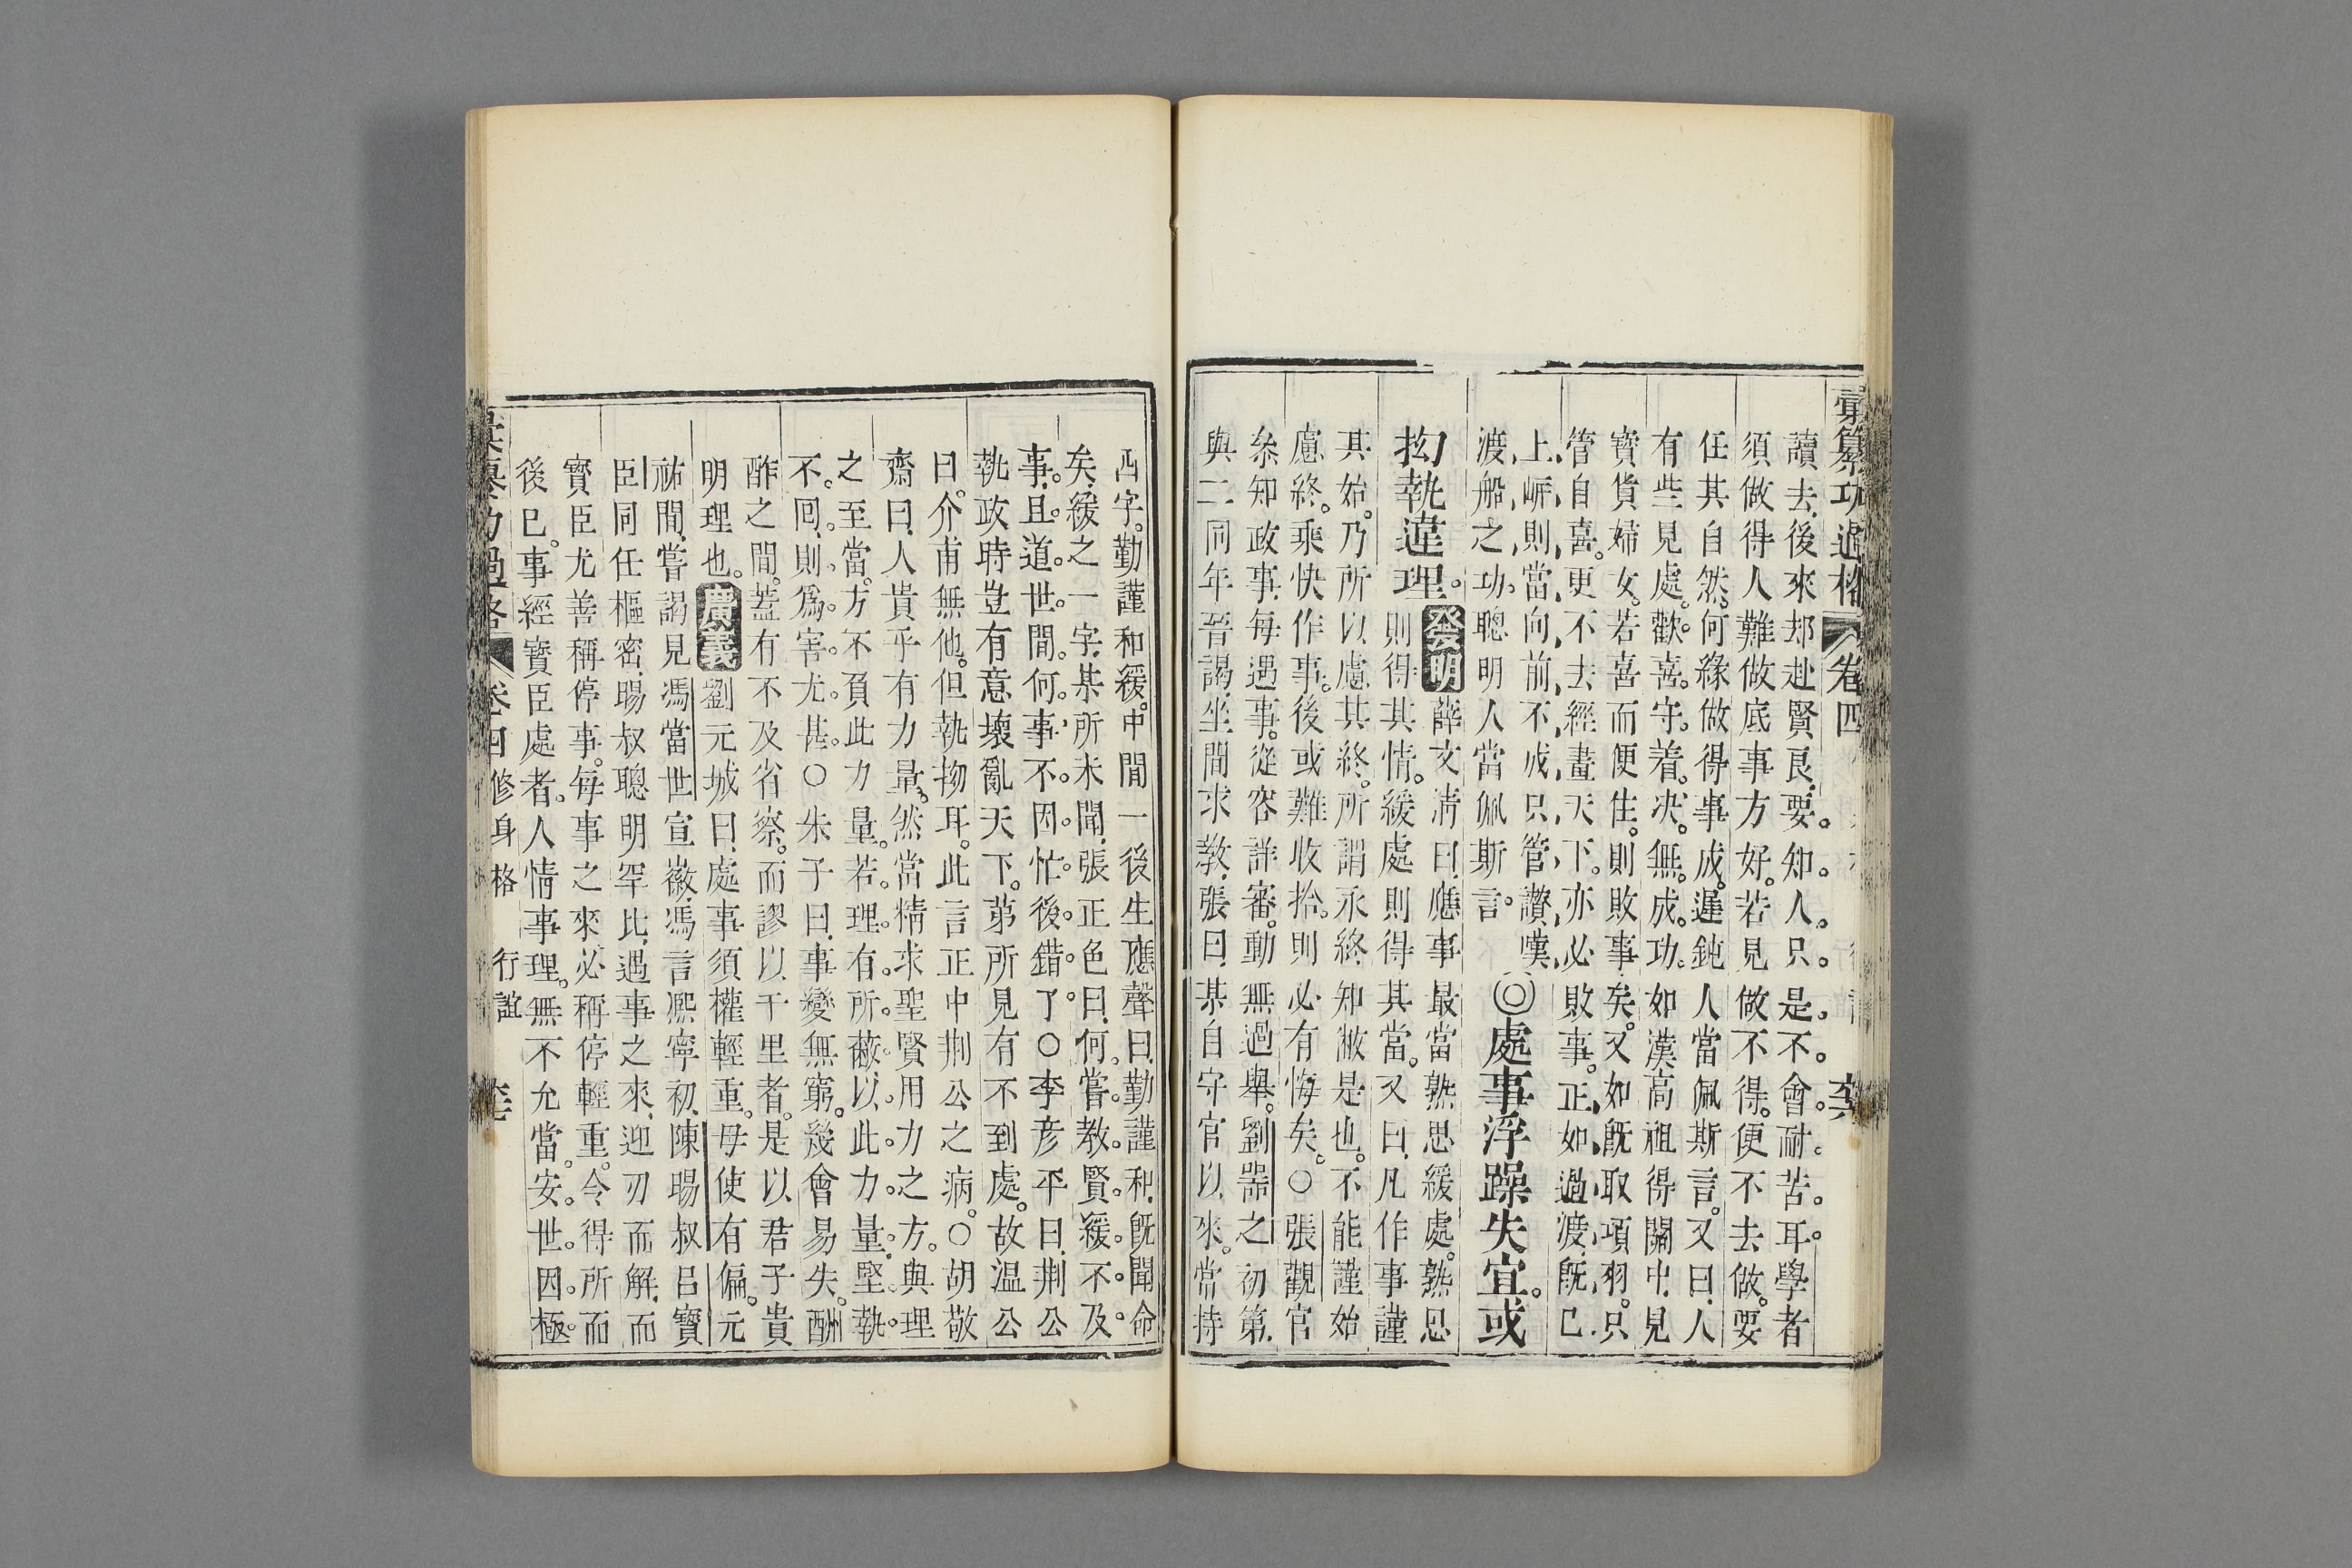 彙纂功過格 卷四
讀去後來却赴賢良要知人只是不會耐苦耳學者
須做得人難做底事方好若見做不得便不去做要
任其自然何緣做得事成遲鈍人當佩斯言又曰人
有些見處歡喜守着决無成功如漢高祖得關中見
寶貨婦女若喜而便住則敗事矣又如既取項羽只
管自喜更不去經畫天下亦必敗事正如過渡既已
上岸則當向前不成只管讚嘆
渡船之功聰明人當佩斯言◎處事浮躁失宜或
拗執違理發明薛文淸曰應事最當熟思緩處熟思
則得其情緩處則得其當又曰凡作事謹
其始乃所以慮其終所謂永終知敝是也不能謹始
慮終乘快作事後或難收拾則必有悔矣○張觀官
叅知政事每遇事從容詳審動無過舉劉器之初第
與二同年晉謁坐間求教張曰某自守官以來常持
四字勤謹和緩中間一後生應聲曰勤謹和既聞命
矣緩之一字某所未聞張正色曰何嘗教賢緩不及
事且道世間何事不因忙後錯了○李彦平曰荆公
執政時豈有意壞亂天下苐所見有不到處故温公
曰介甫無他但執拗耳此言正中荆公之病○胡敬
齋曰人貴乎有力量然當精求聖賢用力之方與理
之至當方不負此力量若理有所蔽以此力量堅執
不囘則爲害尤甚○朱子曰事變無窮幾會易失酬
酢之間葢有不及省察而謬以千里者是以君子貴
明理也廣義劉元城曰處事須權輕重毋使有偏元
祐間嘗謁見馮當世宣徽馮言熈寧初陳暘叔吕寶
臣同任樞密暘叔聰明罕比遇事之來迎刃而解而
寳臣尤善稱停事每事之來必稱停輕重令得所而
後已事經寳臣處者人情事理無不允當安世因極
彙纂功過格 卷四 修身格 行誼